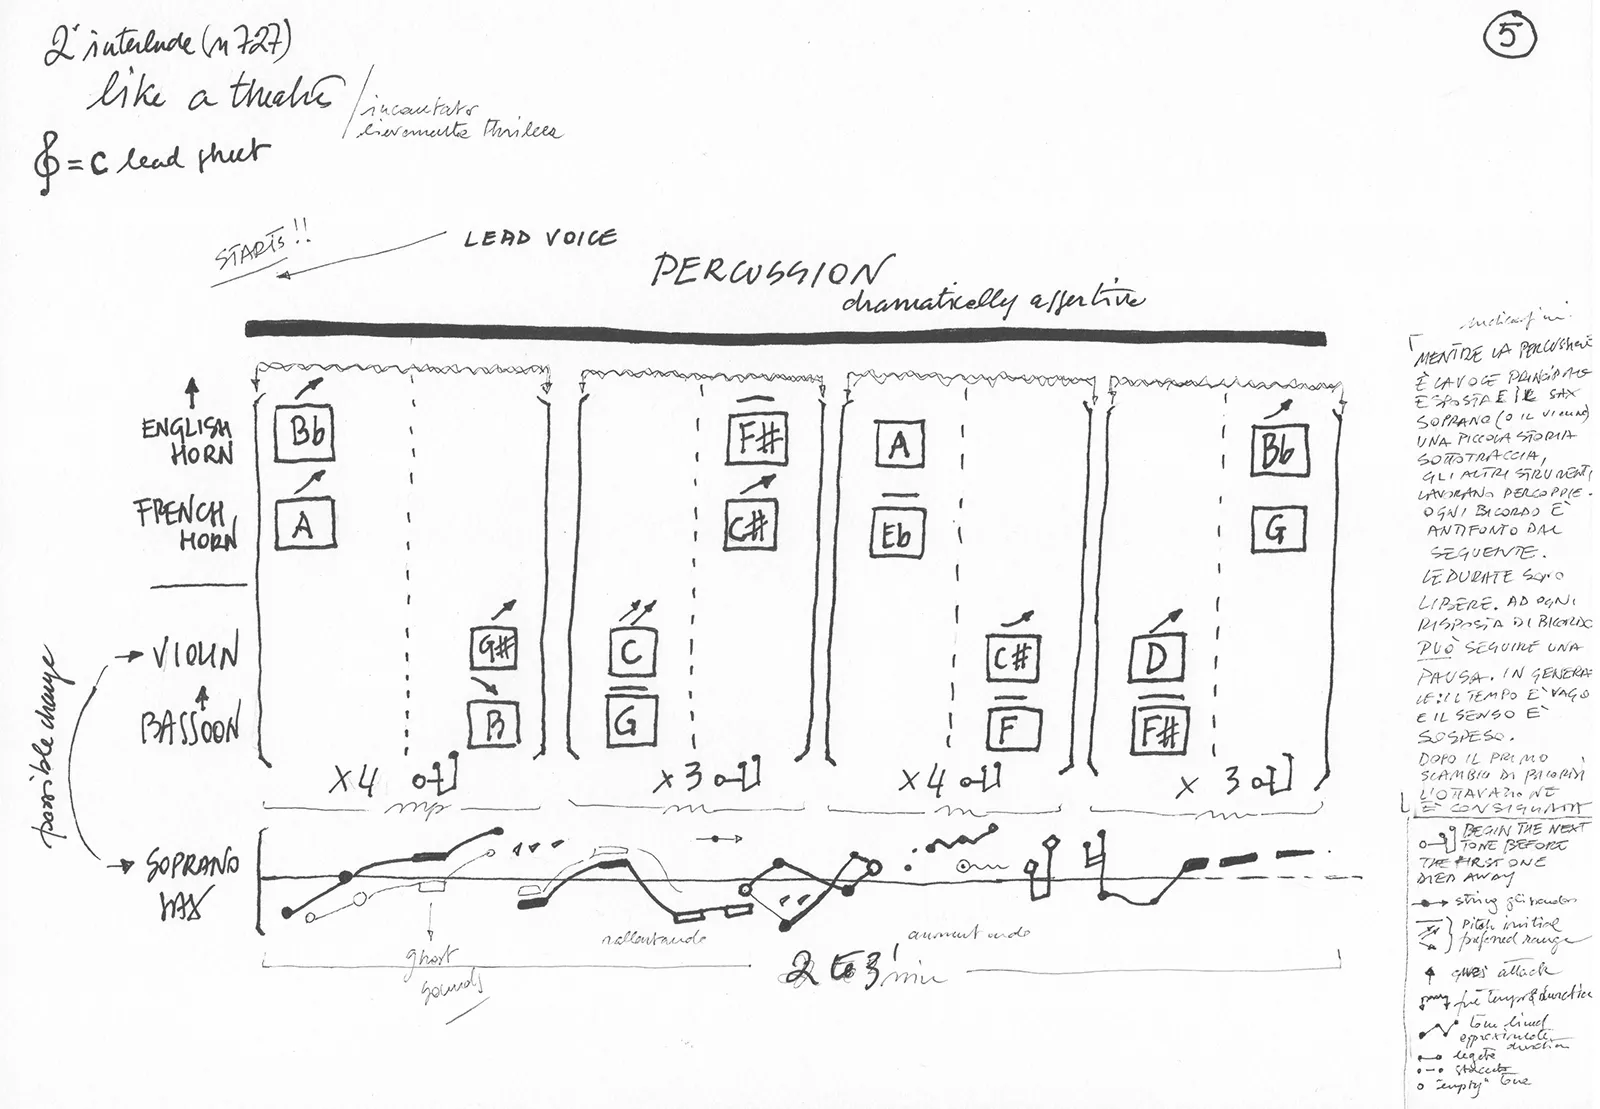 2° interlude (n 727)
5
like a theatre
𝄞 = C lead sheet
STARTS!!
LEAD VOICE
PERCUSSION
dramatically assertive
ENGLISH
HORN
Bb
F#
A
Bb
FRENCH
HORN
A
C#
Eb
G
VIOLIN
G#
C
C#
D
BASSOON
B
G
F
F#
x4
x3
x4
x3
mp
possible change
SOPRANO
SAX
ghost
sounds
rallentando
aumentando
2 to 3' min
MENTRE LA PERCUSSIONE
È LA VOCE PRINCIPALE
ESPOSTA E IL SAX
SOPRANO (O IL VIOLINO)
UNA PICCOLA STORIA
SOTTOTRACCIA,
GLI ALTRI STRUMENTI
LAVORANO PER COPPIE.
OGNI BICORDO È
ANTIFONTO DAL
SEGUENTE.
LE DURATE SONO
LIBERE. AD OGNI
RISPOSTA DI BICORDO
PUÒ SEGUIRE UNA
PAUSA. IN GENERA
LE: IL TEMPO È VAGO
E IL SENSO È
SOSPESO.
DOPO IL PRIMO
SCAMBIO DI BICORDI
L'OTTAVAZIONE
È CONSIGLIATA
BEGIN THE NEXT
TONE BEFORE
THE FIRST ONE
DIED AWAY
string glissandos
Pitch initial
preferred range
gives attack
free tempo & duration
tone lined
approximate
duration
legato
staccato
"empty" tone